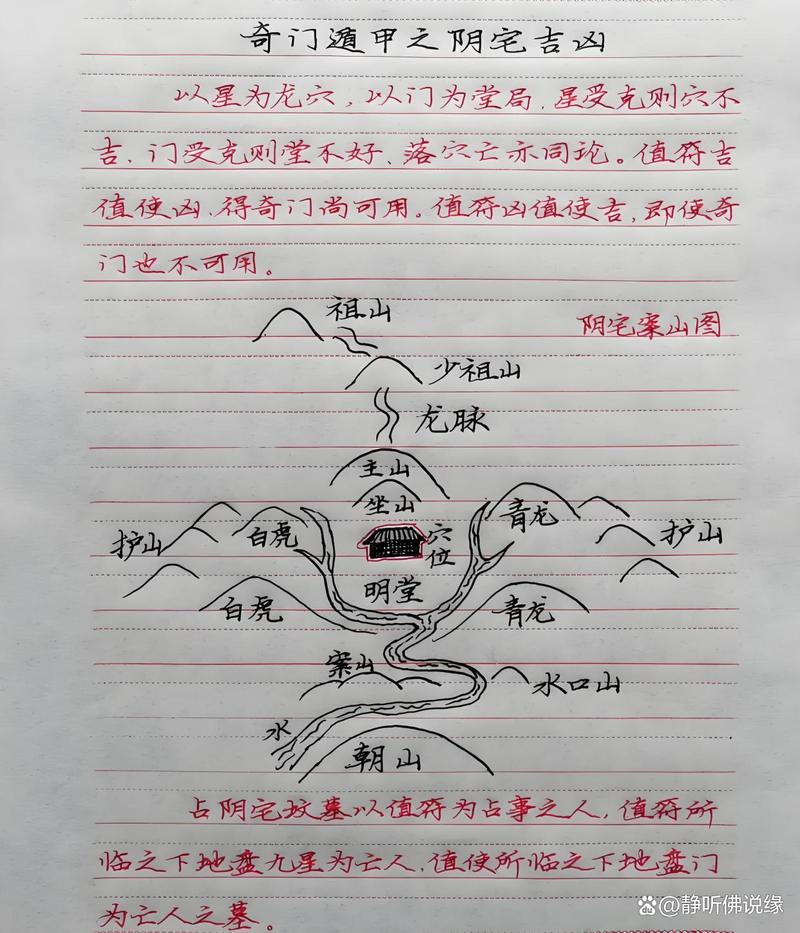 奇门遁甲之阴宅吉凶
以星为龙穴，以门为堂局，星受克则穴不
吉，门受克则堂不好、落穴亡亦同论。值符吉
值使凶，得奇门尚可用。值符凶值使吉，即使奇
门也不可用。
祖山
阴宅案山图
少祖山
龙脉
主山
坐山
护山
白虎
穴位
青龙
护山
明堂
白虎
青龙
案山
水口山
水
朝山
占阴宅坟墓以值符为占事之人，值符所
临之下地盘九星为亡人，值使所临之下地盘门
为亡人之墓。
@静听佛说缘